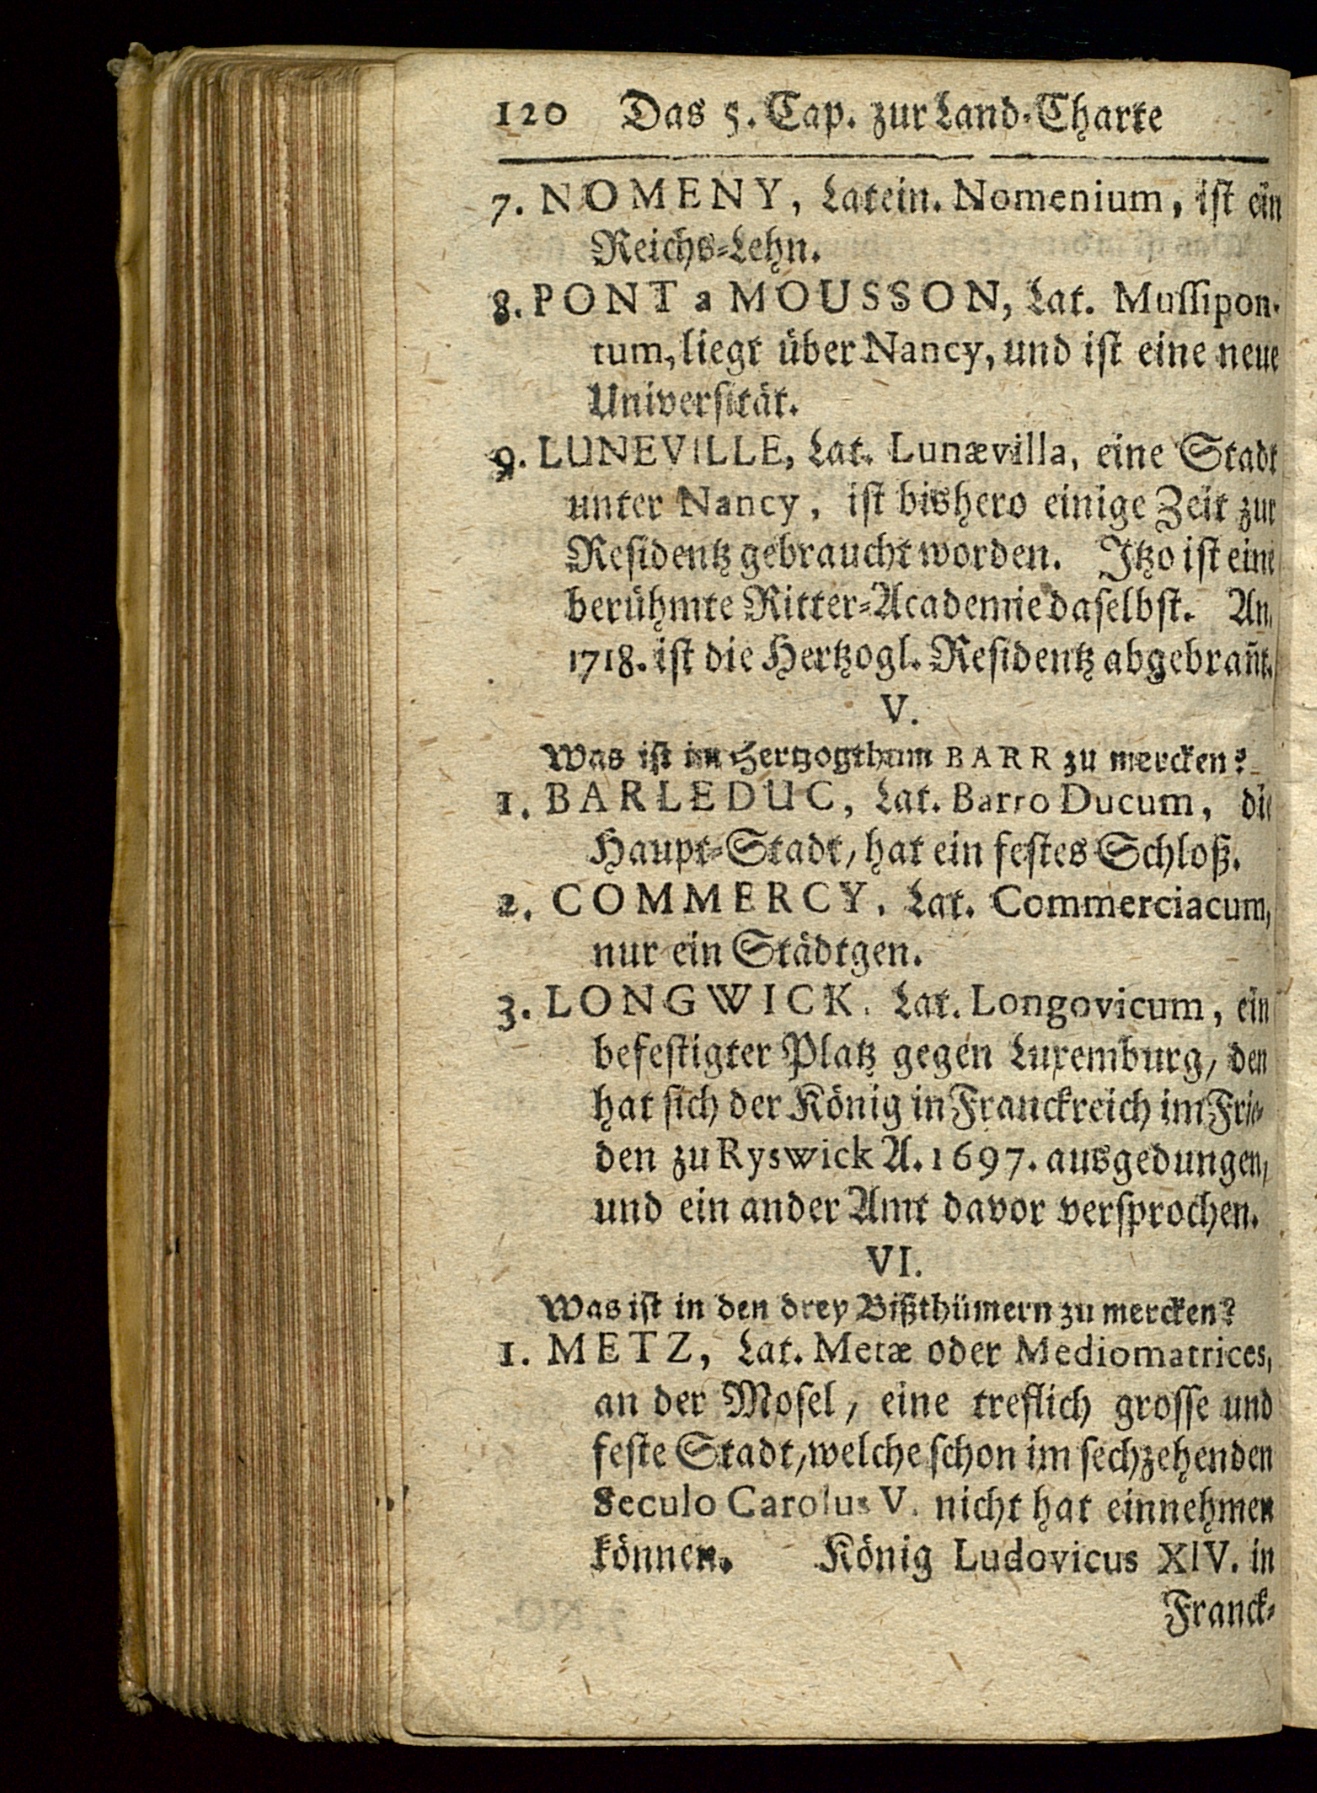 120 Das 5. Cap. zur Land-Charte
7. NOMENY, Latein. Nomenium, ist ein
Reichs-Lehn.
8. PONT a MOUSSON, Lat. Mussipon-
tum, liegt über Nancy, und ist eine neue
Universität.
9. LUNEVILLE, Lat. Lunævilla, eine Stadt
unter Nancy, ist bishero einige Zeit zur
Residentz gebraucht worden. Jtzo ist eine
berühmte Ritter-Academie daselbst. An.
1718. ist die Hertzogl. Residentz abgebrañt.
V.
Was ist im Hertzogthum BARR zu mercken?
1. BARLEDUC, Lat. Barro Ducum, die
Haupt-Stadt, hat ein festes Schloß.
2. COMMERCY, Lat. Commerciacum,
nur ein Städtgen.
3. LONGWICK, Lat. Longovicum, ein
befestigter Platz gegen Luxemburg, den
hat sich der König in Franckreich im Frie-
den zu Ryswick A. 1697. ausgedungen,
und ein ander Amt davor versprochen.
VI.
Was ist in den drey Bißthümern zu mercken?
1. METZ, Lat. Metæ oder Mediomatrices,
an der Mosel, eine treflich grosse und
feste Stadt, welche schon im sechzehenden
Seculo Carolus V. nicht hat einnehmen
können. König Ludovicus XIV. in
Franck-